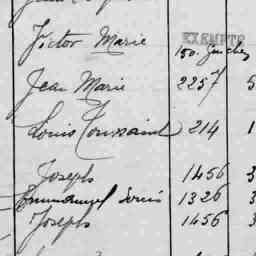 Victor Marie EXEMPTE
150.
Jean Marie 2257 5
Louis Toussaint 214 1
Joseph 1456 3
Emmanuel Louis 1326 3
Joseph 1456 3